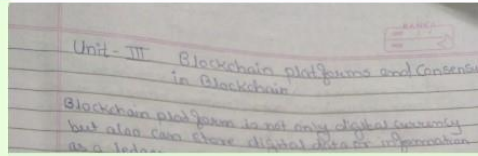 Unit - III Blockchain platforms and Consensu
in Blockchain
Blockchain platform is not only digital currency
but also can store digital data or information
as a ledger